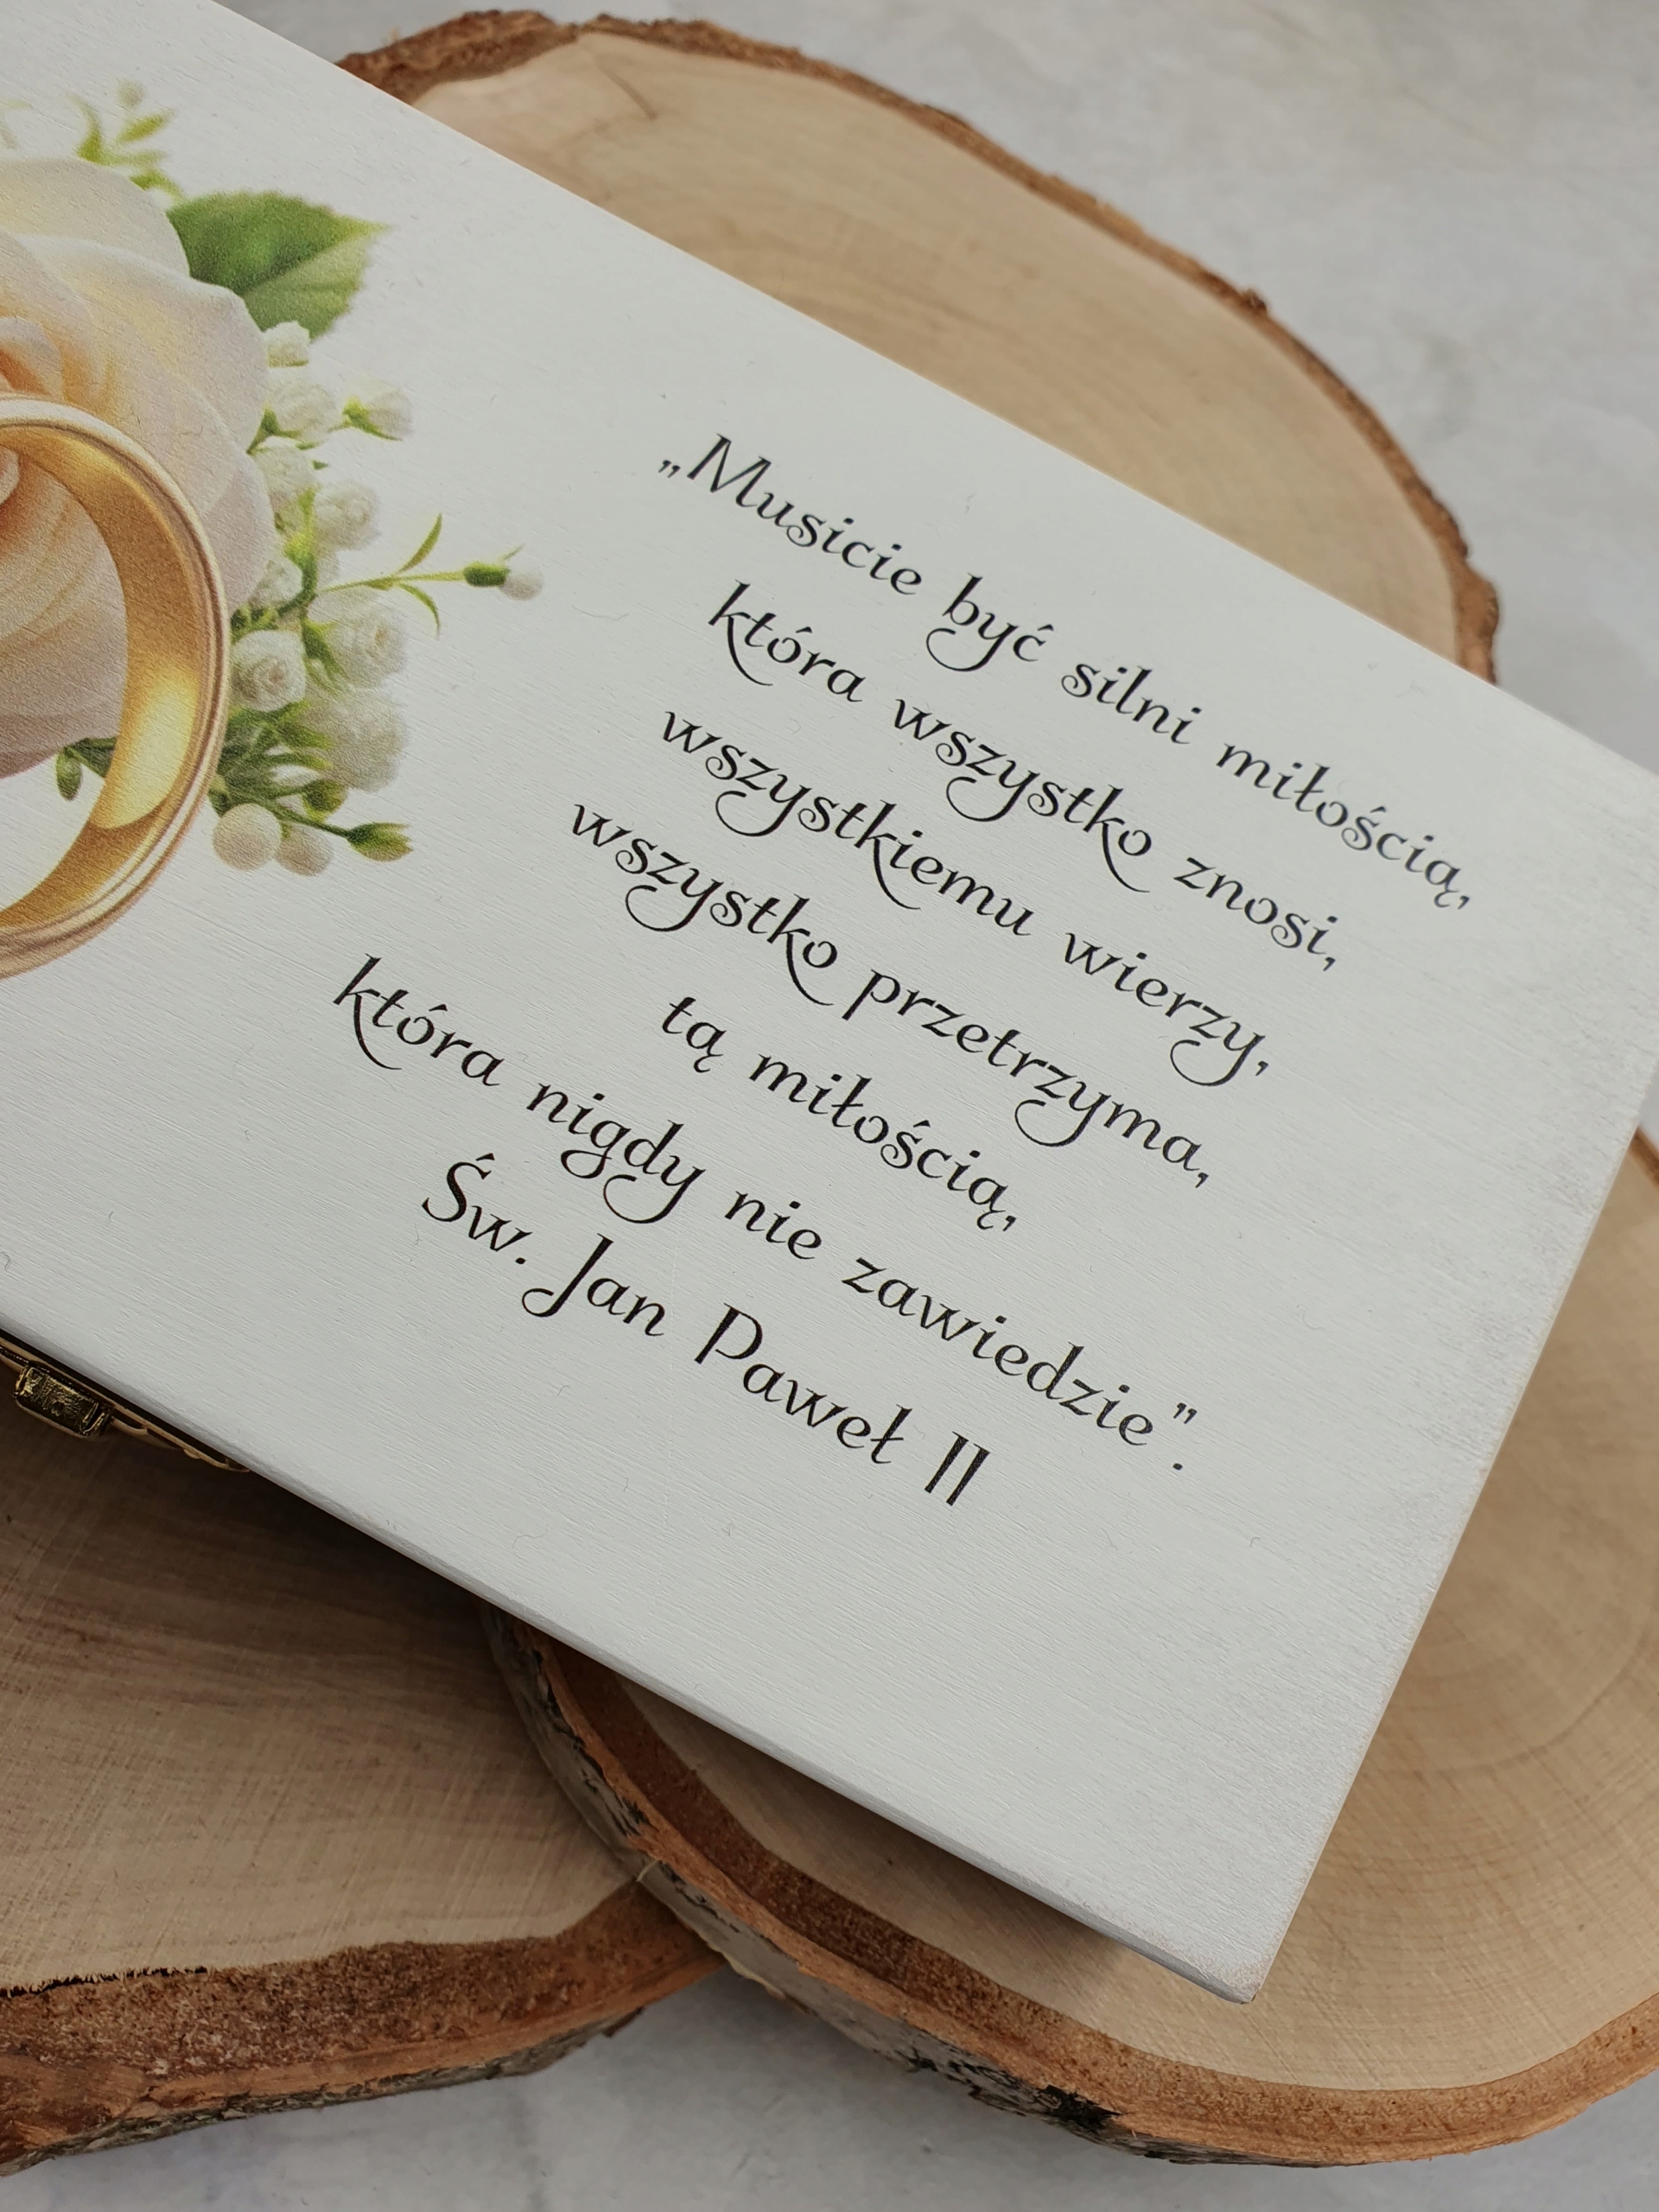 „Musicie być silni miłością,
która wszystko znosi,
wszystkiemu wierzy,
wszystko przetrzyma,
tą miłością,
która nigdy nie zawiedzie”.
Św. Jan Paweł II